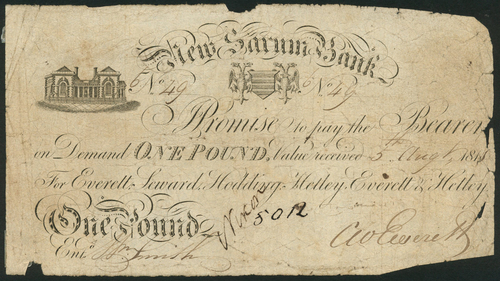 New Sarum Bank
No. 49 No. 49
I Promise to pay the Bearer
on Demand ONE POUND, Value received 5th Augt. 181
For Everett, Leward, Hodding, Hetley, Everett & Hetley.
One Pound
5012
Entd. Smith